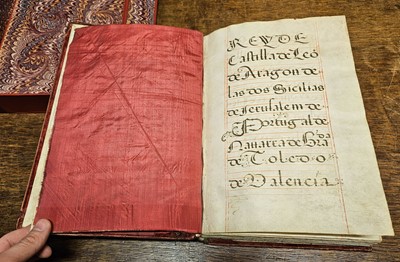 REY DE
Castilla de Leō
de Aragon de
las dos Sicilias
de Jerusalem de
Portugal de
Navarra de Gra
da de Toledo
de Valencia